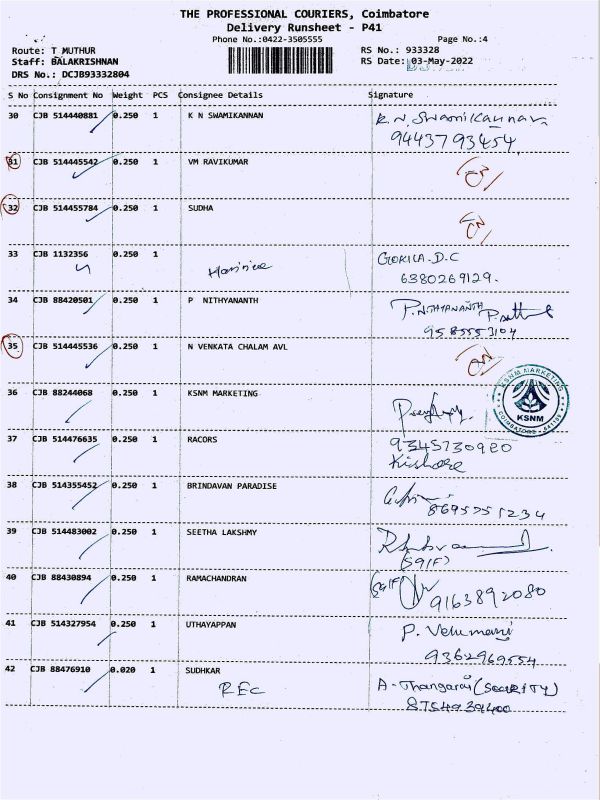 THE PROFESSIONAL COURIERS, Coimbatore
Delivery Runsheet - P41
Phone No.:0422-3505555 Page No.:4
Route: T MUTHUR RS No.: 933328
Staff: BALAKRISHNAN RS Date: 03-May-2022
DRS No.: DCJB93332804
S No Consignment No Weight PCS Consignee Details Signature
30 CJB 514440881 0.250 1 K N SWAMIKANNAN K.N. Swamikannan
9443793454
31 CJB 514445542 0.250 1 VM RAVIKUMAR
32 CJB 514455784 0.250 1 SUDHA
33 CJB 1132356 0.250 1 GOKILA.D.C
6380269129.
34 CJB 88420501 0.250 1 P NITHYANANTH P.NITHYANANTH
9585553104
35 CJB 514445536 0.250 1 N VENKATA CHALAM AVL
KSNM MARKETING
KSNM
COIMBATORE
36 CJB 88244068 0.250 1 KSNM MARKETING
37 CJB 514476635 0.250 1 RACORS 9345730920
Kishore
38 CJB 514355452 0.250 1 BRINDAVAN PARADISE
8695751234
39 CJB 514483002 0.250 1 SEETHA LAKSHMY
40 CJB 88430894 0.250 1 RAMACHANDRAN
9163892080
41 CJB 514327954 0.250 1 UTHAYAPPAN P. Velumani
9362969554
42 CJB 88476910 0.020 1 SUDHKAR A-Thangaraj (SecuRITY)
REC 8754939400